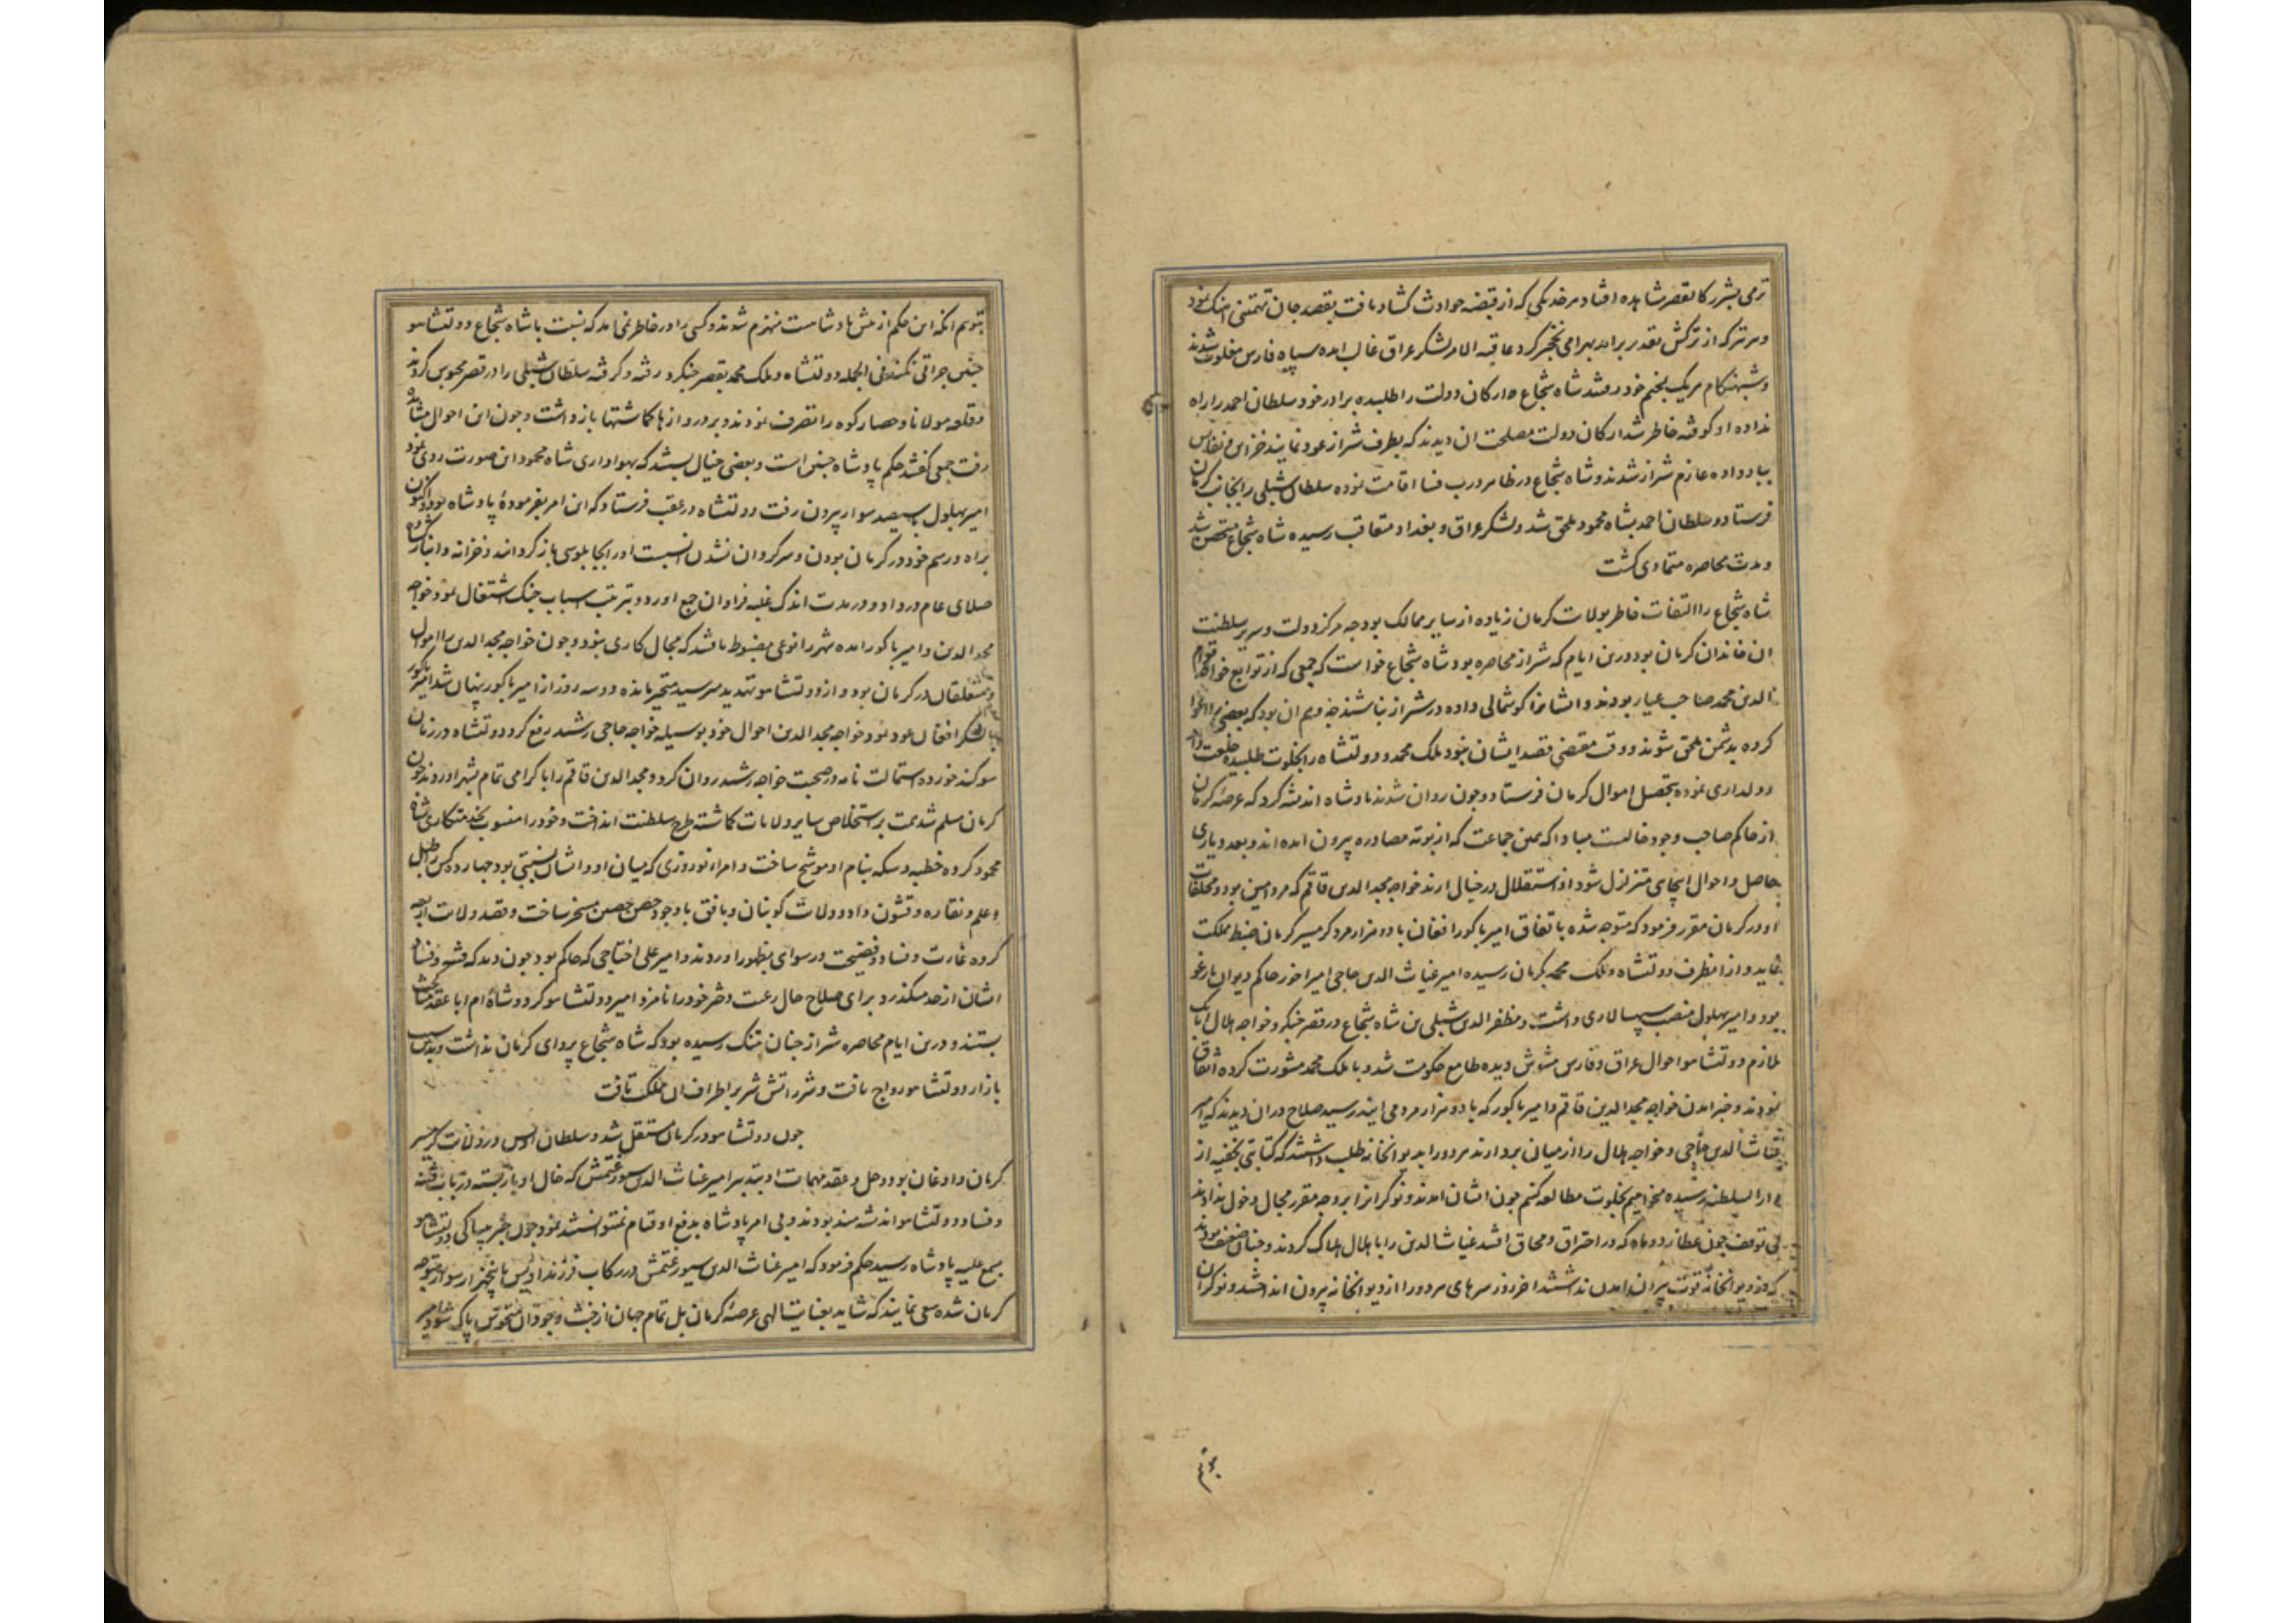 ترمی بشرر کالقصر مشاهده افتاد هر خدنگی که از قبضه حوادث کشاد یافت بقصد جان تهمتنی اهنک نمود
و هر تیر که از ترکش تقدیر برامد بهرامی نخجیر کرد عاقبة الامر لشکر عراق غالب امده سپاه فارس مغلوب شدند
و شبهنکام هر یک بخیم خود رفتند شاه شجاع ارکان دولت را طلبیده برادر خود سلطان احمد را راه
نداده او کوفته خاطر شد ارکان دولت مصلحت ان دیدند که بطرف شیراز عود نمایند خزاین و نفایس
بباد داده عازم شیراز شدند و شاه شجاع در ظاهر درب فسا اقامت نموده سلطان شبلی را بجانب کرمان
فرستاد و سلطان احمد بشاه محمود ملحق شد و لشکر عراق و بغداد متعاقب رسیده شاه شجاع متحصن شد
و مدت محاصره متمادی کشت
شاه شجاع را التفات خاطر بولایت کرمان زیاده از سایر ممالک بود چه مرکز دولت و سریر سلطنت
ان خاندان کرمان بود درین ایام که شیراز محاصره بود شاه شجاع خواست که جمعی که از توابع خواجه قوام
الدین محمد صاحب عیار بودند و ایشانرا کوشمالی داده در شیراز نباشند چه وهم ان بود که بعضی را اغوا
کرده بدشمن ملحق شوند و وقت مقتضی قصد ایشان نبود ملک محمد و دولتشاه را بخلوت طلبیده خلعت داد
و دلداری نموده بتحصیل اموال کرمان فرستاد و چون روان شدند پادشاه اندیشه کرد که عرصه کرمان
از حاکم صاحب وجود خالیست مبادا که همین جماعت که از بوته مصادره بیرون امده اند و بعد دیاری
حاصل و احوال اینجای متزلزل شود استقلال در خیال ارند خواجه مجد الدین قاقم که مرد امین بود و متعلقات
او در کرمان مقرر فرمود که متوجه شده باتفاق امیر باکور افغان با دو هزار مرد کرمسیر کرمان ضبط مملکت
نماید و از انطرف دولتشاه و ملک محمد بکرمان رسیده امیر غیاث الدین حاجی امیر اخور حاکم دیوان یارغو
بود و امیر بهلول منصب سپهسالاری داشت و مظفر الدین شبلی بن شاه شجاع در قصر جنکرد و خواجه هلال اتابک
ملازم دولتشاه احوال عراق و فارس مشوش دیده طامع حکومت شد و با ملک محمد مشورت کرده اتفاق
نمودند و خبر امدن خواجه مجد الدین قاقم و امیر باکور که با دو هزار مرد می ایند رسید صلاح دران دیدند که امیر
غیاث الدین حاجی و خواجه هلال را از میان بردارند هر دو را بدیوانخانه طلب داشتند که کتابتی بخفیه از
دار السلطنه رسیده میخواهیم بخلوت مطالعه کنیم چون ایشان امدند و نوکرانرا بر وجه مقرر مجال دخول ندادند
بی توقف چون عطارد و ماه که در احتراق و محاق افتند غیاث الدین را با هلال هلاک کردند و چنان ضعیف بودند
که از دیوانخانه قوت بیرون امدن نداشتند اخر روز سرهای هر دو را از دیوانخانه بیرون انداختند و نوکران
بتوهم
بتوهم انکه این حکم از پیش پادشاهست منهزم شدند و کسی را در خاطر نمی امد که نسبت با شاه شجاع دولتشاه
چنین جراتی نکند فی الجمله دولتشاه و ملک محمد بقصر جنکرد رفته و کرفته سلطان شبلی را در قصر محبوس کردند
و قلعه مولانا و حصار کوه را تصرف نمودند و بر دروازها کماشتها بازداشت و چون این احوال مشاهده
رفت جمعی کفتند حکم پادشاه چنین است و بعضی خیال بستند که بهواداری شاه محمود این صورت روی نمود
امیر بهلول با سیصد سوار بیرون رفت دولتشاه در عقب فرستاد که این امر بفرموده پادشاه بود اکنون
براه و رسم خود در کرمان بودن و سرکردان نشدن انسبت او را بچاپلوسی باز کردانید و خزانه و انبار کشاده
صلای عام در داد و در مدت اندک غلبه فراوان جمع اورد و بترتیب اسباب جنک اشتغال نمود خواجه
مجد الدین و امیر باکور امده شهر را نوعی مضبوط یافتند که مجال کاری نبود و چون خواجه مجد الدین را اموال
و متعلقان در کرمان بود و از دولتشاه تهدید میرسید متحیر مانده دو سه روز از امیر باکور پنهان شد امیر باکور
با لشکر افغان عود نمود خواجه مجد الدین احوال خود بوسیله خواجه حاجی رشید رفع کرد و دولتشاه در زمان
سوکند خورده استمالت نامه در صحبت خواجه رشید روان کرد و مجد الدین قاقم را با کرامی تمام بشهر اوردند چون
کرمان مسلم شد همت بر استخلاص سایر ولایات کماشته طرح سلطنت انداخت و خود را منسوب بخدمتکاری شاه
محمود کرده خطبه و سکه بنام او موشح ساخت و امراء نوروزی که میان او و ایشان نسبتی بود چهار ده کس را طبل
و علم و نقاره و قشون داد و ولایت کوبنان و بافق با وجود حصن حصین مسخر ساخت و قصد ولایت اربعه
کرده غارت و فساد و فضیحت و رسوای بظهور اوردند و امیر علی اختاجی که حاکم بود چون دید که فتنه و فساد
ایشان از حد میکذرد برای صلاح حال رعیت دختر خود را نامزد امیر دولتشاه کرد و شاة ام ابا عقد مناکحت
بستند و درین ایام محاصره شیراز چنان تنک رسیده بود که شاه شجاع پروای کرمان نداشت و بدین سبب
بازار دولتشاه رواج یافت و شرر اتش شر بر اطراف ان ملک تافت
چون دولتشاه در کرمان مستقل شد و سلطان اویس در ولایت کرمسیر
کرمان و اوغان بود و حل و عقد مهمات او بتدبیر امیر غیاث الدین سیورغتمش که خال او باز بسته در باب فتنه
و فساد دولتشاه اندیشه مند بودند و بی امر پادشاه بدفع او قیام نمیتوانستند نمود چون خبر بیباکی دولتشاه
بمسع علیه پادشاه رسید حکم فرمود که امیر غیاث الدین سیورغتمش در رکاب فرزند اویس با پنجهزار سوار متوجه
کرمان شده سعی نمایند که شاید بعنایت الهی عرصه کرمان بل تمام جهان از خبث وجود ان منحوس پاک شود امیر